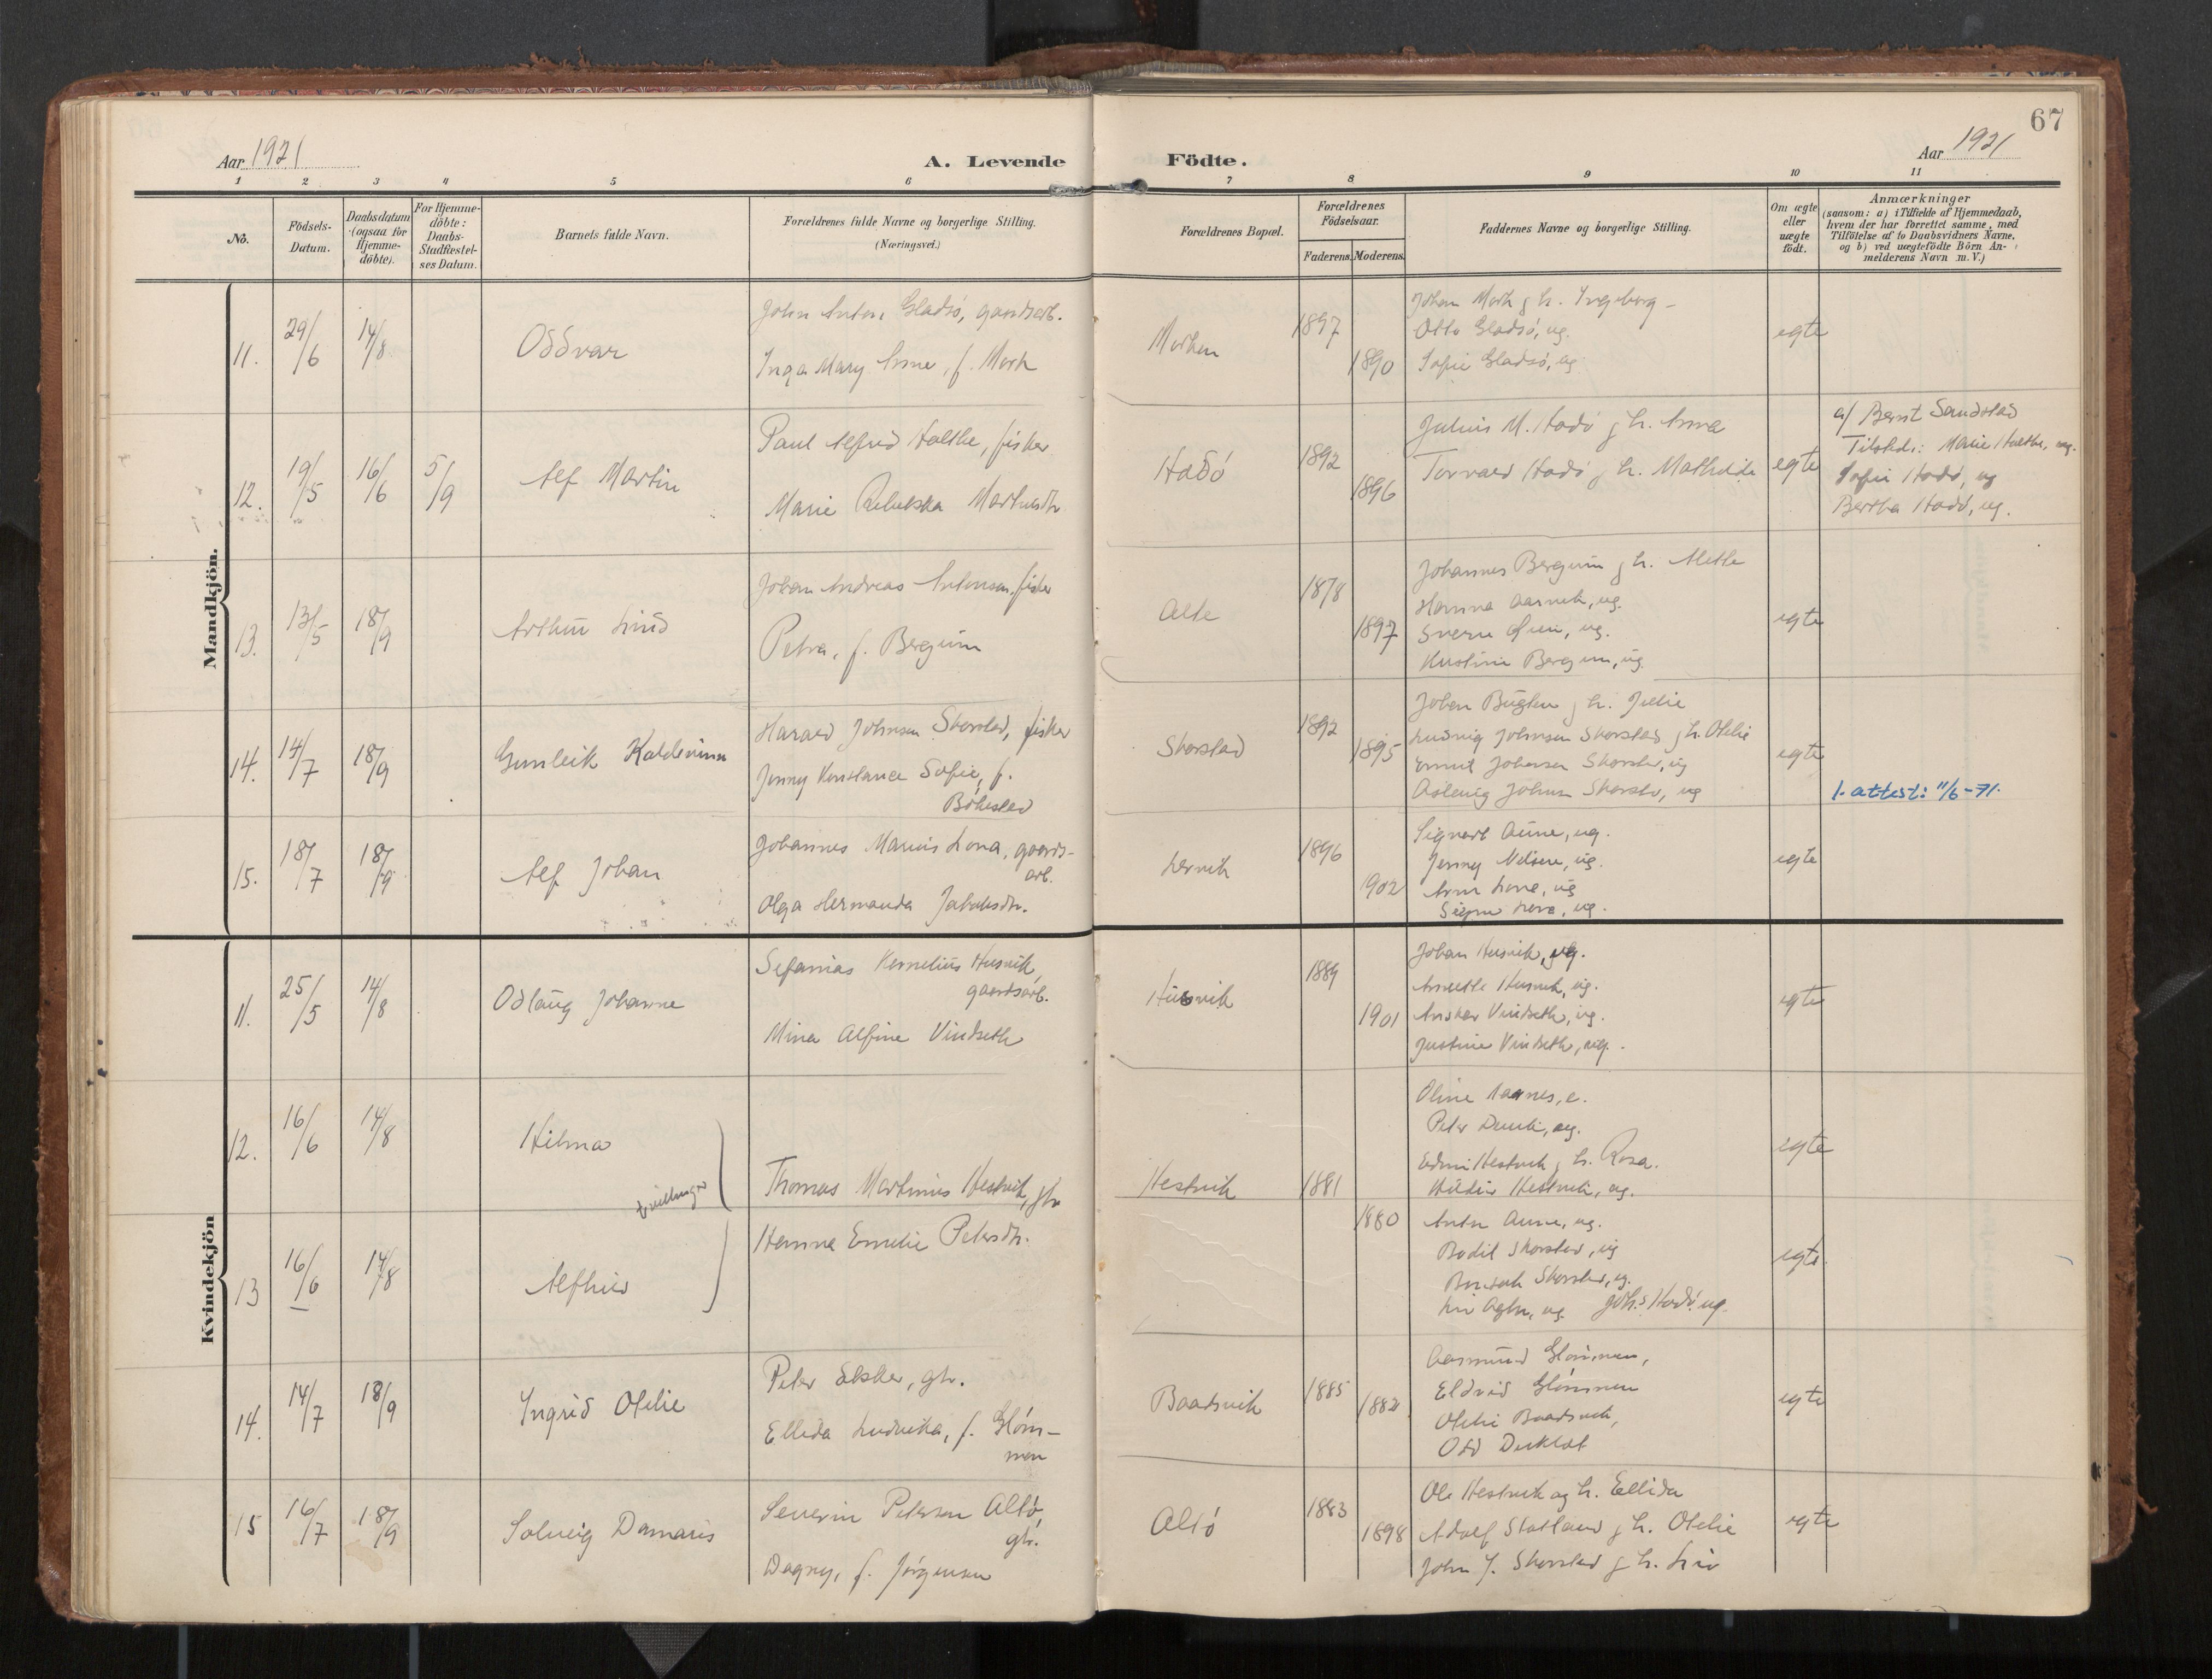 67
Aar 1921
A. Levende Födte.
Aar 1921
1 2 3 4 5 6 7 8 9 10 11
No.
Födsels-
Datum.
Daabsdatum
(ogsaa for
Hjemme-
döbte).
For Hjemme-
döbte:
Daabs-
Stadfæstel-
ses Datum.
Barnets fulde Navn.
Forældrenes fulde Navne og borgerlige Stilling.
(Næringsvei.)
Forældrenes Bopæl.
Forældrenes
Födselsaar.
Faderens. Moderens.
Faddernes Navne og borgerlige Stilling.
Om ægte
eller
uægte
født.
Anmærkninger
(saasom: a) i Tilfælde af Hjemmedaab,
hvem der har forrettet samme, med
Tilföielse af to Daabsvidners Navne,
og b) ved uægtefödte Börn An-
melderens Navn m. V.)
Mandkjön.
11. 29/6 14/8 Oddvar
John Anton Gladsö, gaardsarb.
Inga Mary Anne, f. Mork
Morken 1897 1890
Johan Mork g h. Ingeborg
Otto Gladsö, ug.
Sofie Gladsö, ug
egte
12. 19/5 16/6 5/9 Alf Martin
Paul Alfred Halthe, fisker
Marie Rebekka Martinsdtr
Hadö 1892 1896
Julius M. Hadö g h. Anna
Torvald Hadö g h. Mathilde
egte
a/ Bernt Sandstad
Tilstede: Marie Halthe, ug.
Sofie Hadö, ug
Bertha Hadö, ug.
13. 13/5 18/9 Arthur Lind
Johan Andreas Antonsen, fisker
Petra, f. Bergum
Alte 1878 1897
Johannes Bergum g h. Mette
Hanna Aarvik, ug.
Sverre, ug.
Kristine Bergum, ug
egte
14. 14/7 18/9 Gunleik Kaldevinn
Harald Johnsen Skorstad, fisker
Jenny Konstance Sofie, f.
Bökestad
Skorstad 1892 1895
Johan Bugten g h. Julie
Ludvig Johnsen Skorstad g h. Otelie
Emil Johansen Skorstad, ug
Aslaug Johnsen Skorstad, ug
egte
1. attest: 11/6-71.
15. 18/7 18/9 Alf Johan
Johannes Marius Lona, gaards-
arb.
Olga Hermanda Jakobsdtr.
Lervik 1896 1902
Sigvart Aune, ug.
Jenny Nilsen, ug.
Arne Lona, ug
Signe Lona, ug.
egte
Kvindekjön
11. 25/5 14/8 Odlaug Johanne
Sefanias Kornelius Husvik,
gaardsarb.
Mina Alfine Vindseth
Husvik 1889 1901
Johan Husvik, ug.
Annette Husvik, ug.
Ansker Vindseth, ug.
Justine Vindseth, ug.
egte
12. 16/6 14/8 Hilma
tvillinger
Thomas Martinus Hestvik, gbr
Hestvik 1881
Oline Aarnes, e.
Peter, ug.
Edvin Hestvik g h. Rosa.
Hildur Hestvik, ug.
egte
13 16/6 14/8 Alfhild
Hanna Emelie Petersdtr.
1880
Anton Aune, ug.
Bodil Skorstad, ug
Skorstad, ug.
ug. Johs Hadö ug.
egte
14. 14/7 18/9 Ingrid Otelie
Peter Elsker, gbr.
Ellida Ludvika, f. Glöm-
men
Baadsvik 1885 1882
Aasmund Glömmen,
Eldvid Glömmen
Otelie Baadsvik,
Odd
egte
15 16/7 18/9 Solveig Damaris
Severin Petersen Altö,
gbr.
Dagny, f. Jörgensen
Altö 1883 1898
Ole Hestvik og h. Ellida
Adolf Statland g h. Otelie
John J. Skorstad g h.
egte